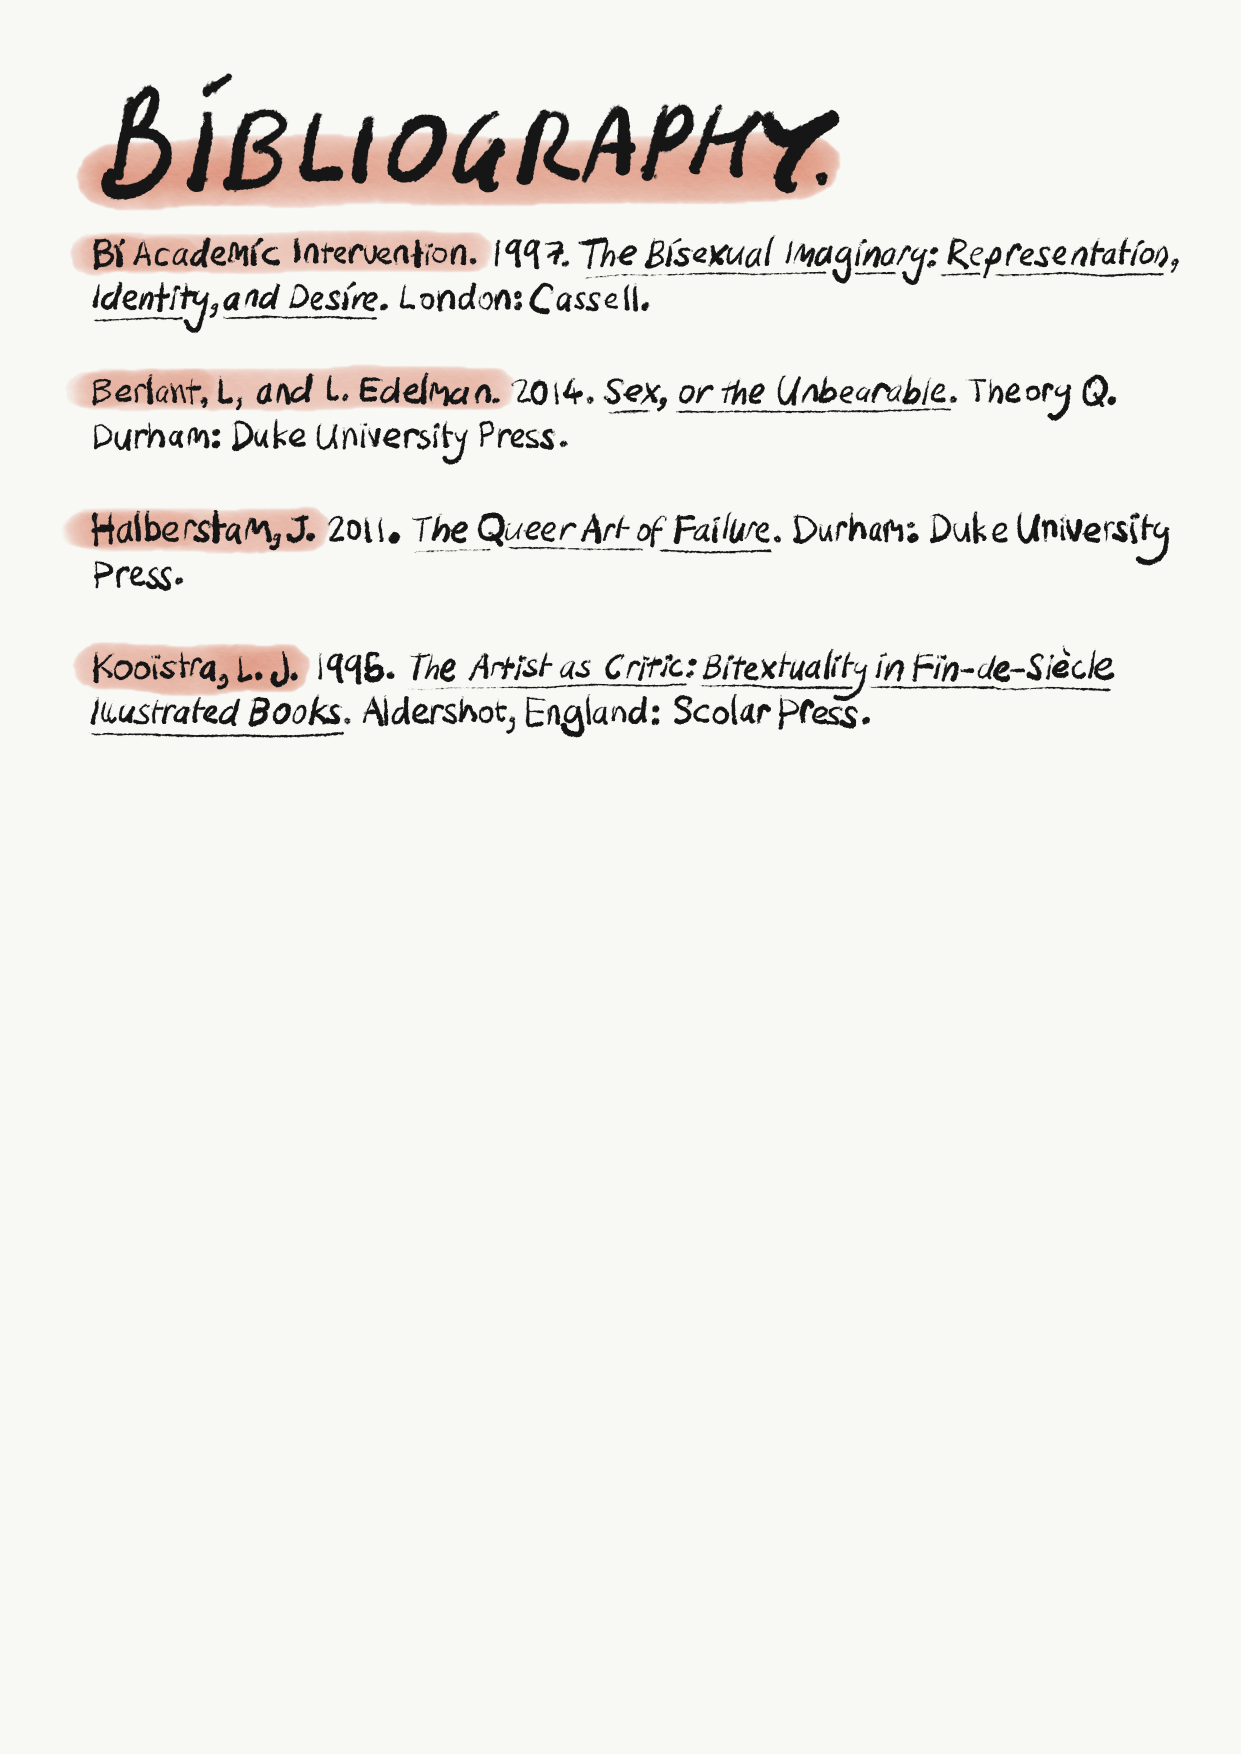 BIBLIOGRAPHY.
Bi Academic Intervention. 1997. The Bisexual Imaginary: Representation,
Identity, and Desire. London: Cassell.
Berlant, L, and L. Edelman. 2014. Sex, or the Unbearable. Theory Q.
Durham: Duke University Press.
Halberstam, J. 2011. The Queer Art of Failure. Durham: Duke University
Press.
Kooistra, L. J. 1995. The Artist as Critic: Bitextuality in Fin-de-Siècle
Illustrated Books. Aldershot, England: Scolar Press.